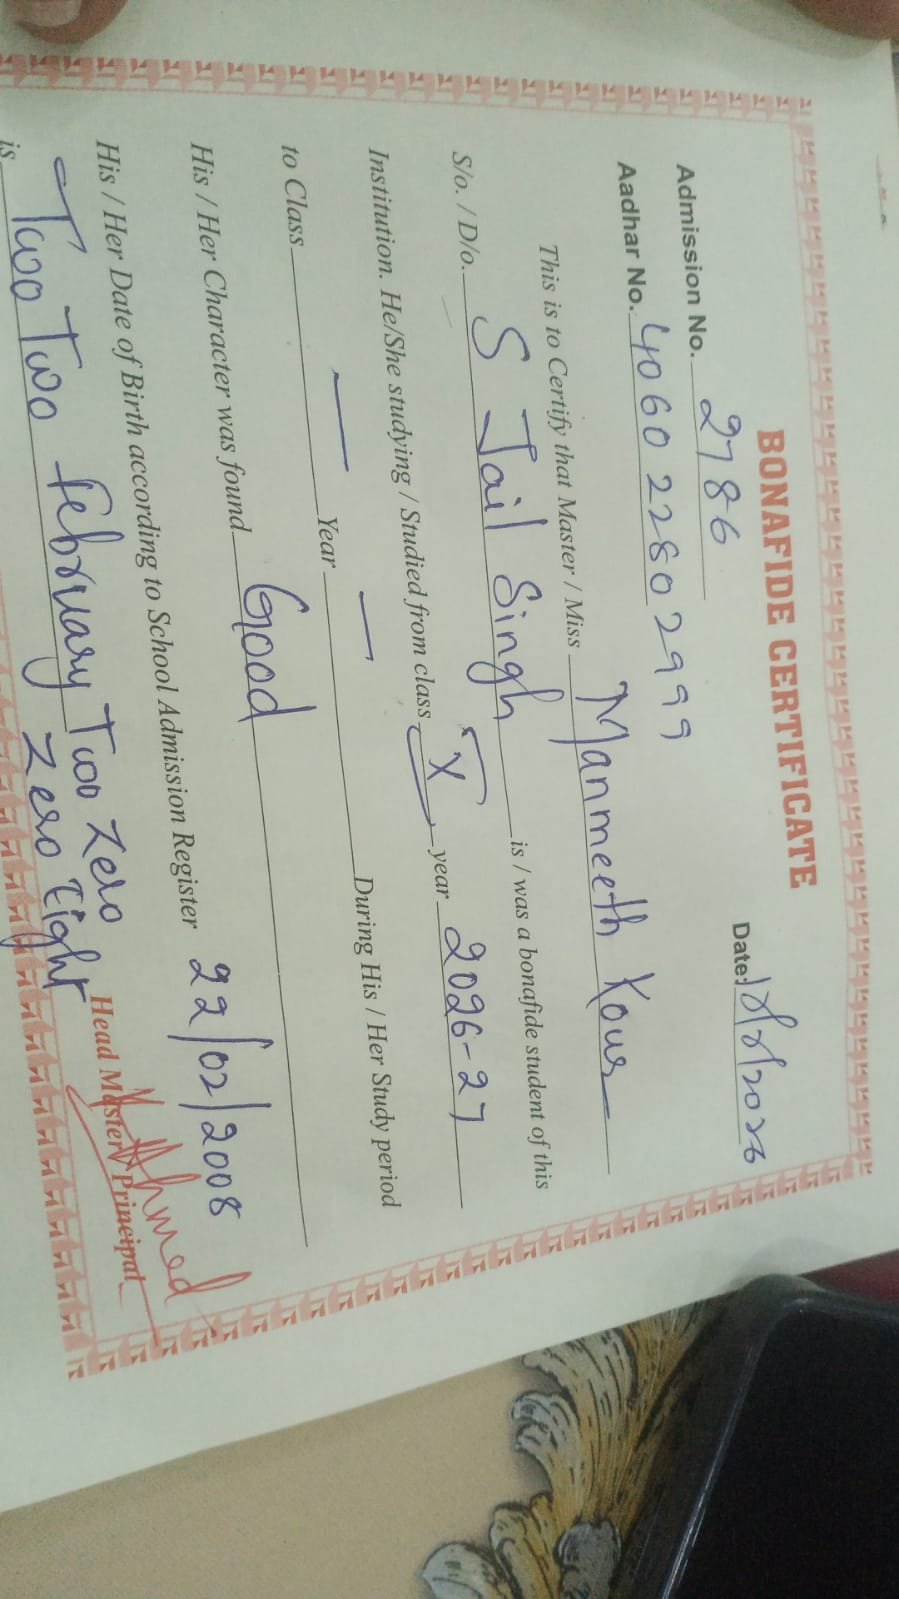 BONAFIDE CERTIFICATE
Admission No. 2786
Date:
Aadhar No. 4060 2280 2999
This is to Certify that Master / Miss Manmeeth Kour
S/o. / D/o. S Jail Singh is / was a bonafide student of this
Institution. He/She studying / Studied from class X year 2026-27
to Class — Year — During His / Her Study period
His / Her Character was found Good
His / Her Date of Birth according to School Admission Register 22/02/2008
is Two Two february Two Zero
Zero Eight
Head Master / Principal
Ahmed